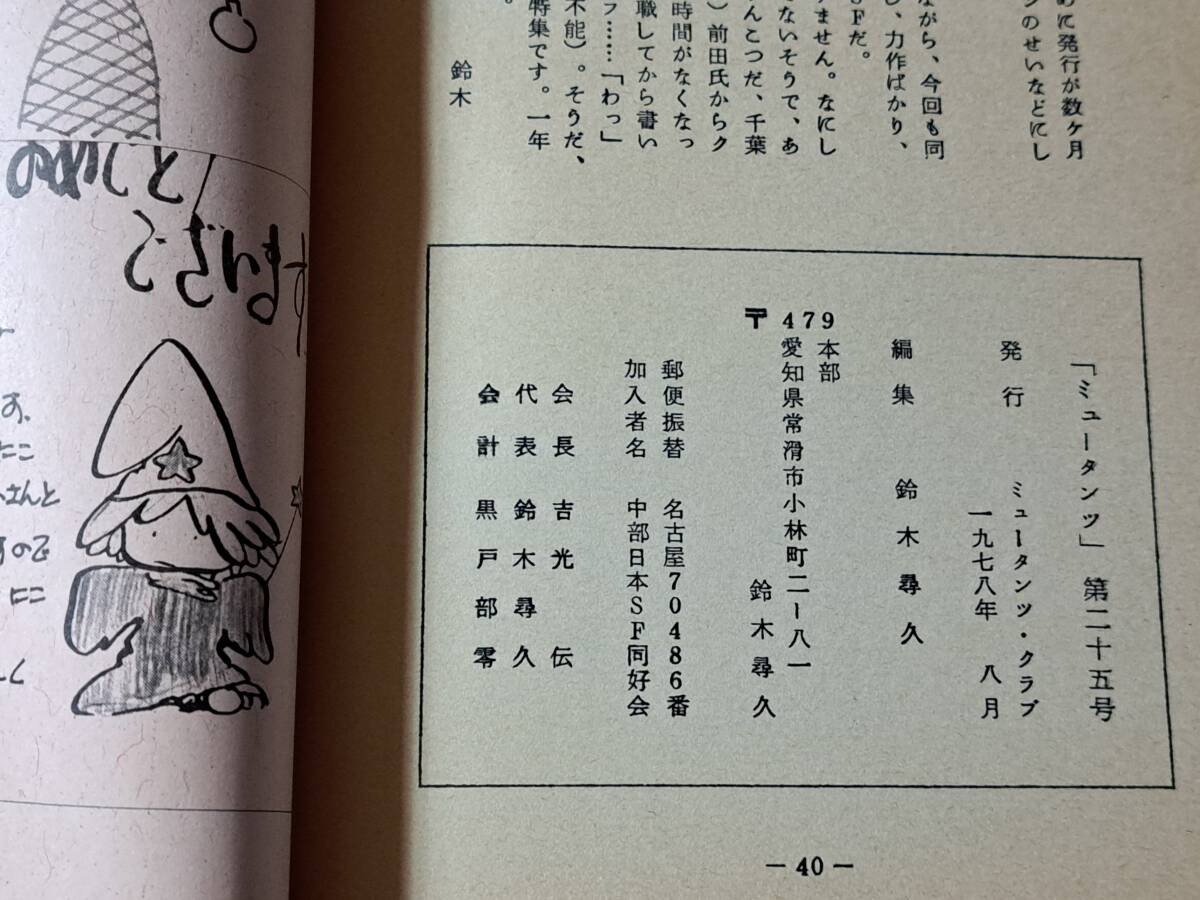 めに発行が数ヶ月
ンのせいなどにし
ながら、今回も同
し、力作ばかり、
SFだ。
ません。なにし
ないそうで、あ
んこつだ、千葉
）前田氏からク
時間がなくなっ
職してから書い
フ……「わっ」
不能）。そうだ、
特集です。一年
。
鈴木
「ミュータンツ」　第二十五号
発行　ミュータンツ・クラブ
一九七八年　八月
編集　鈴木尋久
本部
〒479
愛知県常滑市小林町二ー八一
鈴木尋久
郵便振替　名古屋70486番
加入者名　中部日本SF同好会
会長　吉光　伝
代表　鈴木尋久
会計　黒戸部零
－40－
ございます
す、
たこ
さんと
すので
にこ